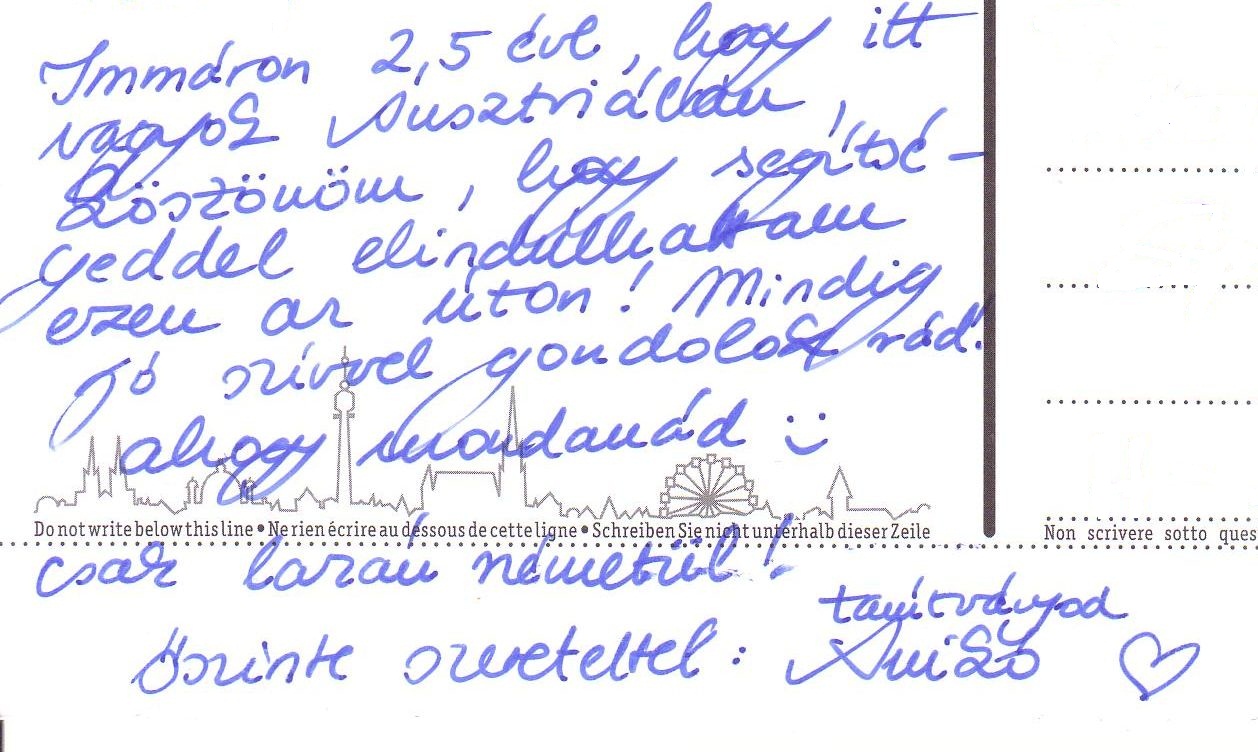 Immáron 2,5 éve, hogy itt
vagyok Ausztriában,
köszönöm, hogy segítsé-
geddel elindulhattam
ezen az úton! Mindig
jó szívvel gondolok rád!
ahogy mondanád :)
Do not write below this line • Ne rien écrire au dessous de cette ligne • Schreiben Sie nicht unterhalb dieser Zeile
Non scrivere sotto ques
csak lazán németül!
Őszinte szeretettel: tanítványod
Anikó ♡